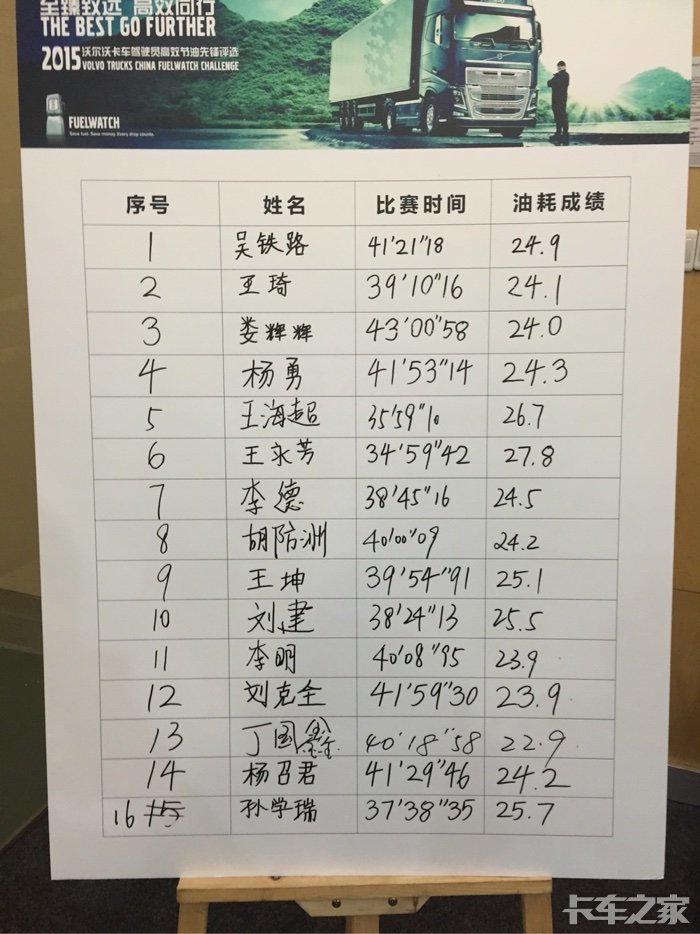 至臻致远 高效同行
THE BEST GO FURTHER
2015 沃尔沃卡车驾驶员高效节油先锋评选
VOLVO TRUCKS CHINA FUELWATCH CHALLENGE
FUELWATCH
Save fuel. Save money. Every drop counts.
序号 姓名 比赛时间 油耗成绩
1 吴铁路 41'21"18 24.9
2 王琦 39'10"16 24.1
3 娄辉辉 43'00"58 24.0
4 杨勇 41'53"14 24.3
5 王海超 35'59"10 26.7
6 王永芳 34'59"42 27.8
7 李德 38'45"16 24.5
8 胡防洲 40'00"09 24.2
9 王坤 39'54"91 25.1
10 刘建 38'24"13 25.5
11 李明 40'08"95 23.9
12 刘克全 41'59"30 23.9
13 丁国鑫 40'18"58 22.9
14 杨召君 41'29"46 24.2
16 孙学瑞 37'38"35 25.7
卡车之家